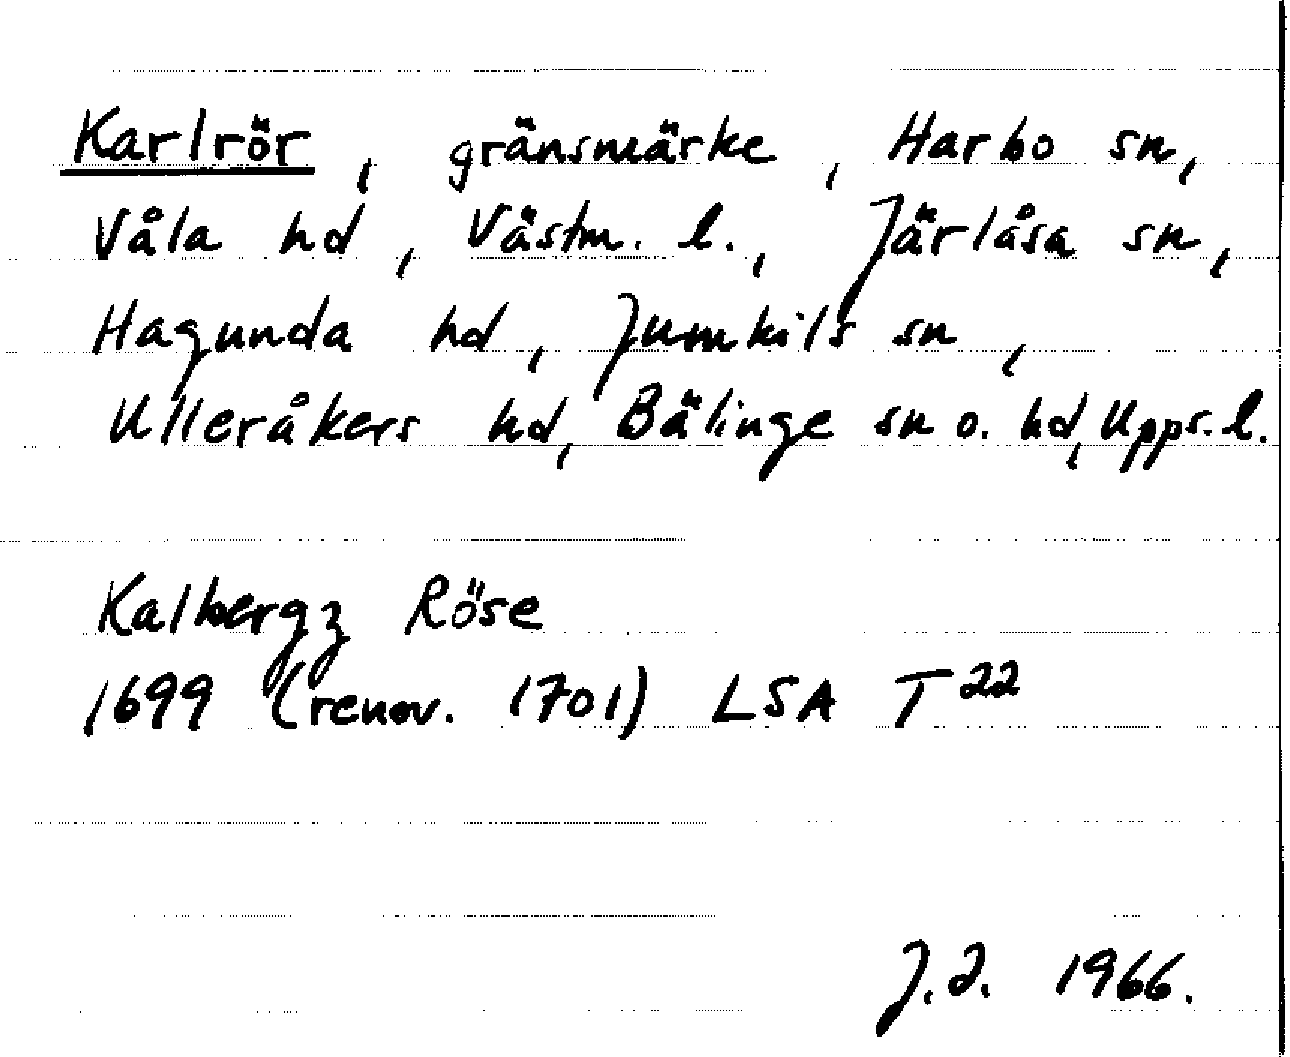 Karlrör, gränsmärke, Harbo sn,
Våla hd, Västm. l., Järlåsa sn,
Hagunda hd, Jumkils sn,
Ulleråkers hd, Bälinge sn o. hd, Upps. l.
Kalbergz Röse
1699 (renov. 1701) LSA T 22
J.J. 1966.